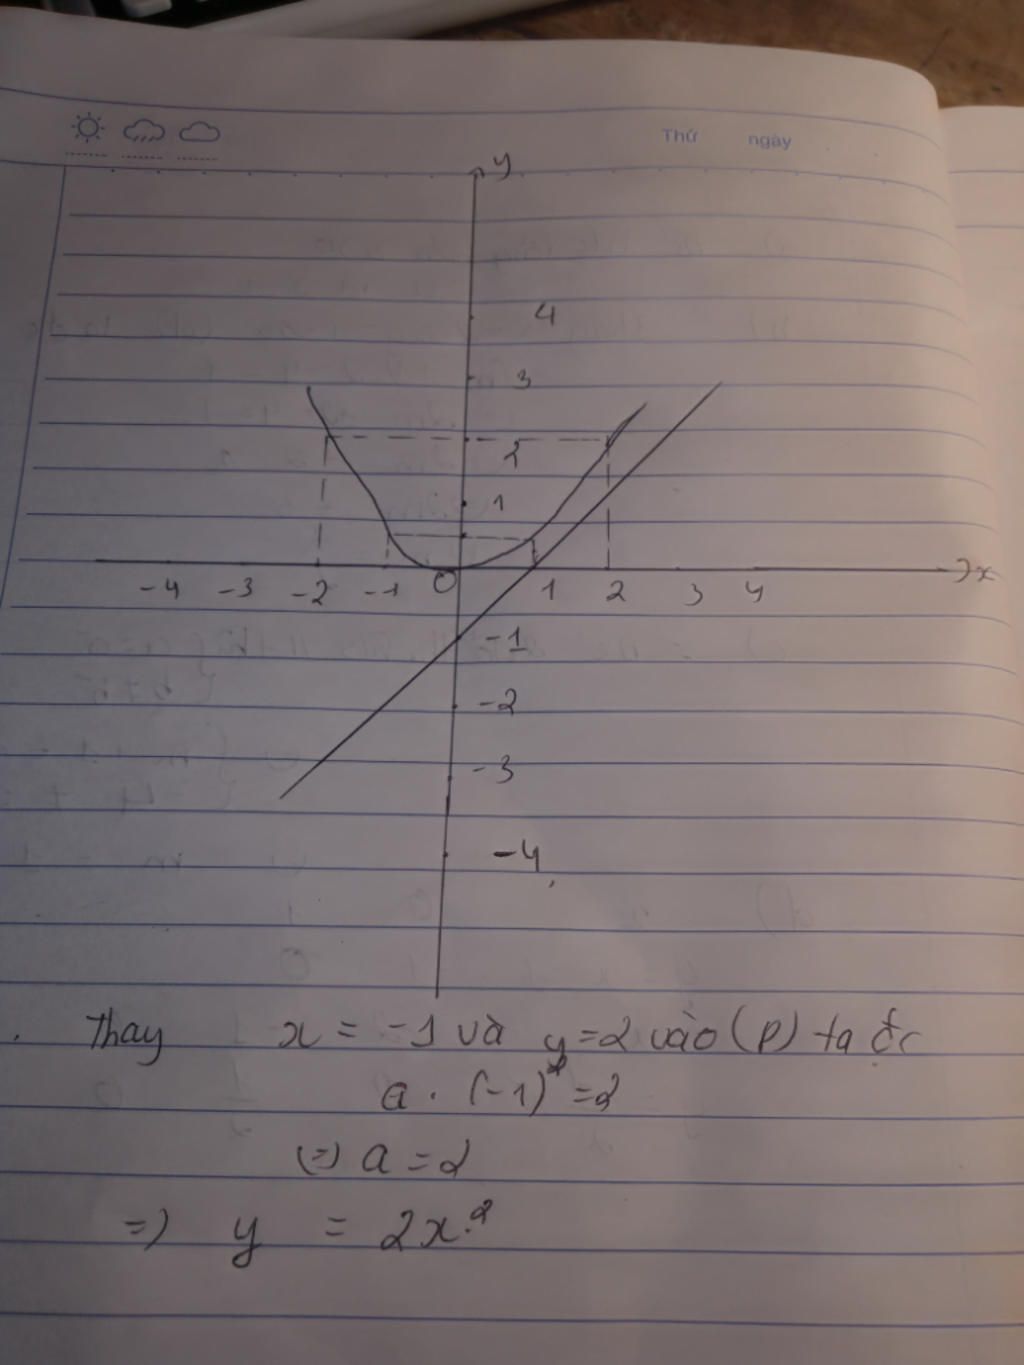 Thứ ngày
y
4
3
2
1
-4 -3 -2 -1 0 1 2 3 4 x
-1
-2
-3
-4
Thay x = -1 và y=2 vào (P) ta đc
a . (-1)² =2
(=) a = 2
=) y = 2x²